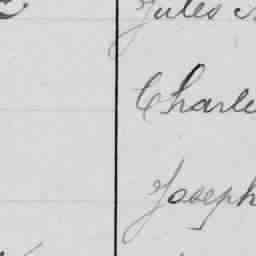 Jules
Charle
Joseph